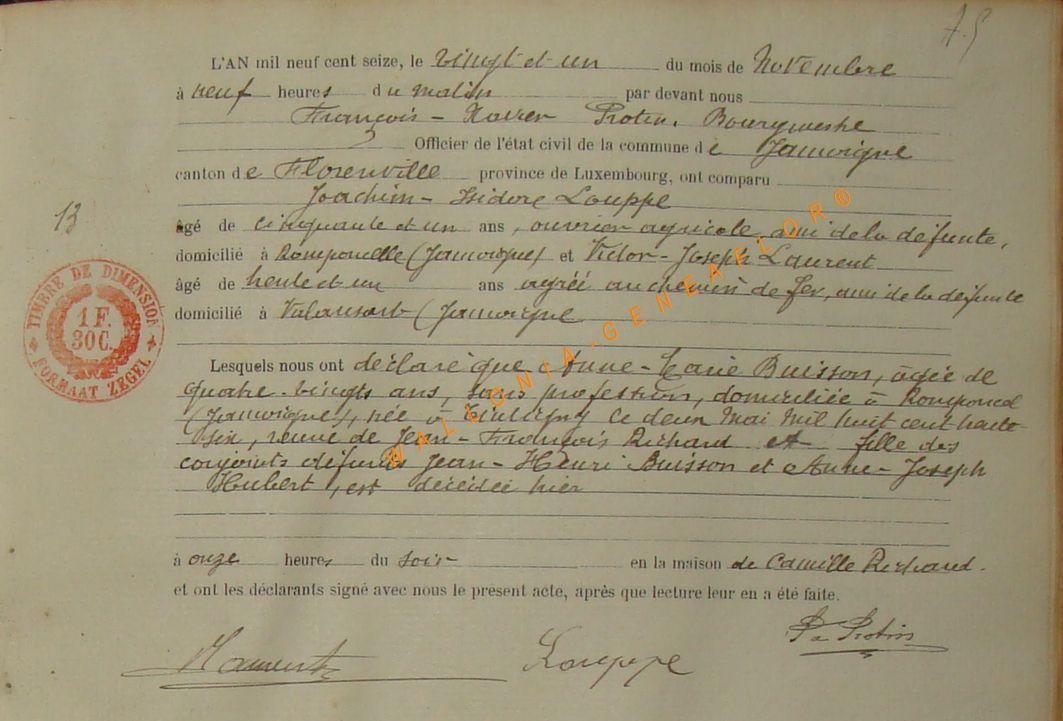 L'AN mil neuf cent seize, le vingt et un du mois de Novembre
à neuf heures du matin par devant nous
François-Xavier Protin, Bourgmestre
Officier de l'état civil de la commune de Jamoigne
canton de Florenville province de Luxembourg, ont comparu
Joachim-Isidore Louppe
âgé de cinquante et un ans, ouvrier agricole, ami de la défunte,
domicilié à Romponcelle (Jamoigne) et Victor-Joseph Laurent
âgé de trente et un ans agréé au chemin de fer, ami de la défunte
domicilié à Valansart (Jamoigne
13
TIMBRE DE DIMENSION
1 F.
30 C.
FORMAAT ZEGEL
Lesquels nous ont déclaré que Anne-Marie Buisson, âgée de
quatre-vingts ans, sans profession, domiciliée à Romponcel
(Jamoigne), née à Tintigny le deux Mai mil huit cent trente
six, veuve de Jean-François Richard et fille des
conjoints défunts Jean-Henri Buisson et Anne-Joseph
Hubert, est décédée hier
à onze heures du soir en la maison de Camille Richard.
et ont les déclarants signé avec nous le présent acte, après que lecture leur en a été faite.
Protin
Louppe
WALLONIA-GENEAFLOR®